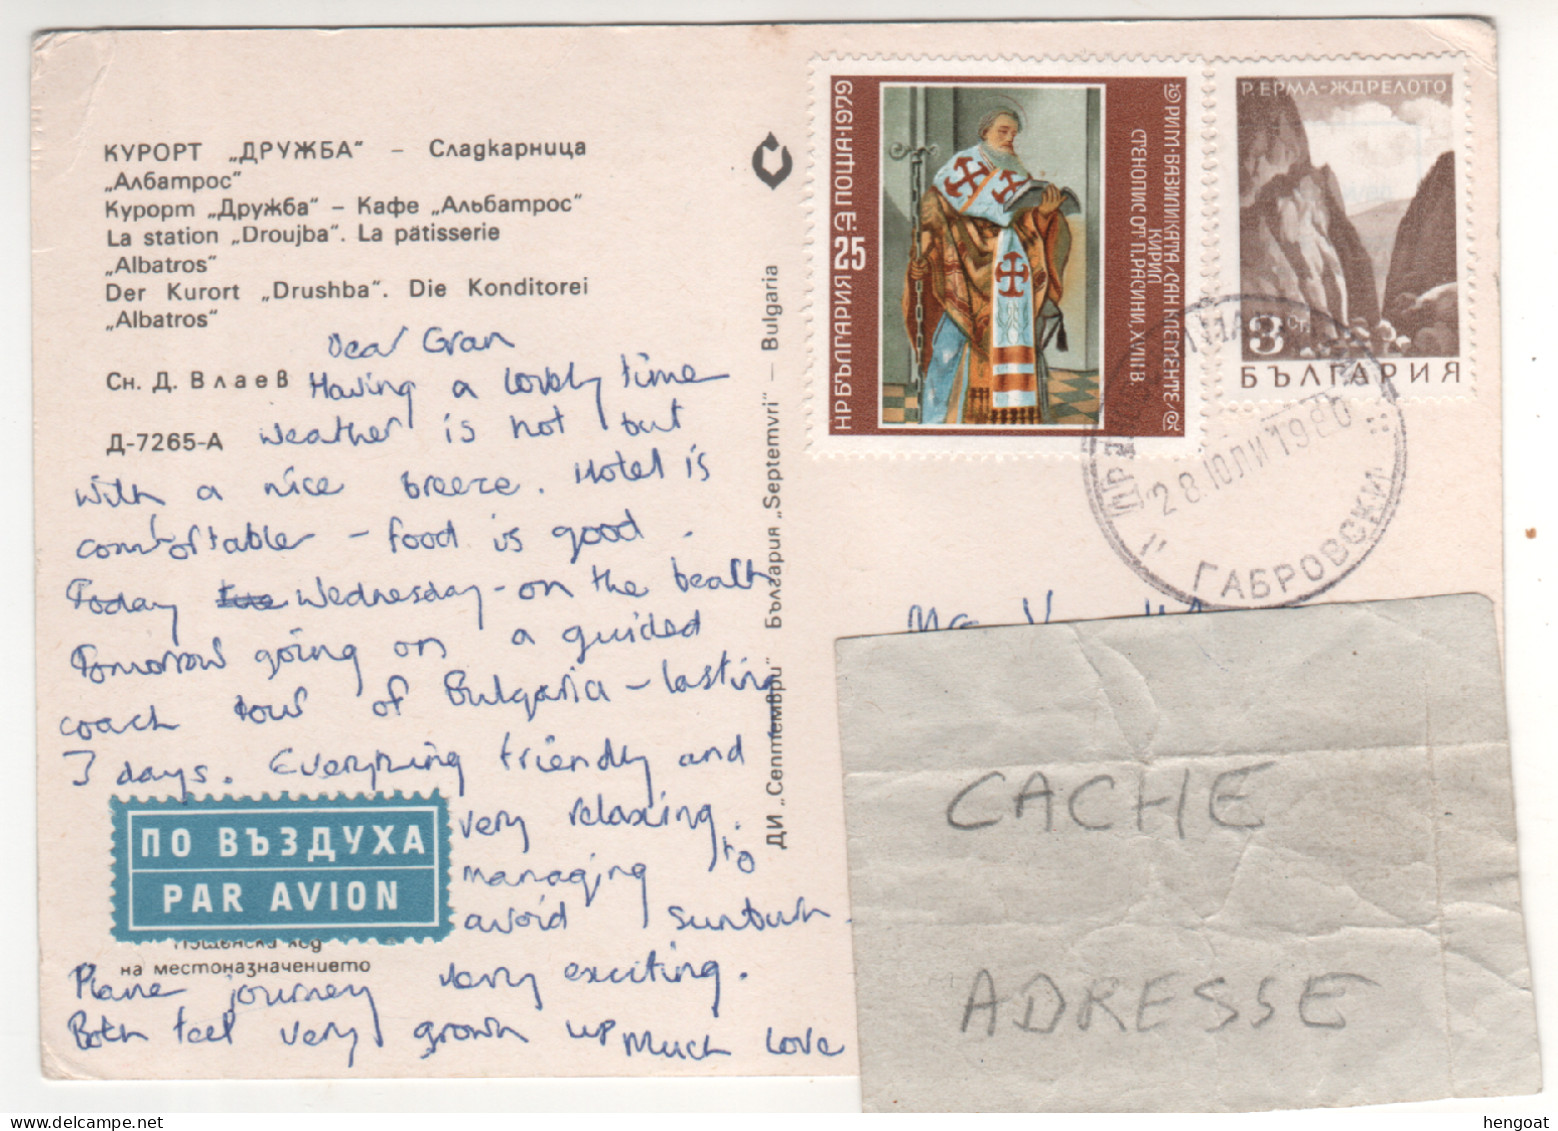 КУРОРТ „ДРУЖБА" – Сладкарница
„Албатрос"
Курорт „Дружба" – Кафе „Альбатрос"
La station „Droujba". La pätisserie
„Albatros"
Der Kurort „Drushba". Die Konditorei
„Albatros"
Сн. Д. Влаев
Д-7265-А
Dear Gran
Having a lovely time
weather is hot but
with a nice breeze. Hotel is
comfortable – food is good.
Today Wednesday – on the beach
Tomorrow going on a guided
coach tour of Bulgaria – lasting
3 days. Everything friendly and
very relaxing.
managing to
avoid sunburn.
Plane journey very exciting.
Both feel very grown up
Much love
ПО ВЪЗДУХА
PAR AVION
Пощенски код
на местоназначението
ДИ „Септември" България „Septemvri" – Bulgaria
НР БЪЛГАРИЯ 25 ПОЩА·1979
РИМ·БАЗИЛИКАТА „САН КЛЕМЕНТЕ"
КИРИЛ
СТЕНОПИС ОТ П. РАСИНИ, XVIII В.
Р. ЕРМА – ЖДРЕЛОТО
3 СТ.
БЪЛГАРИЯ
28.ЮЛИ1980
ГАБРОВСКИ
CACHE
ADRESSE
hengoat